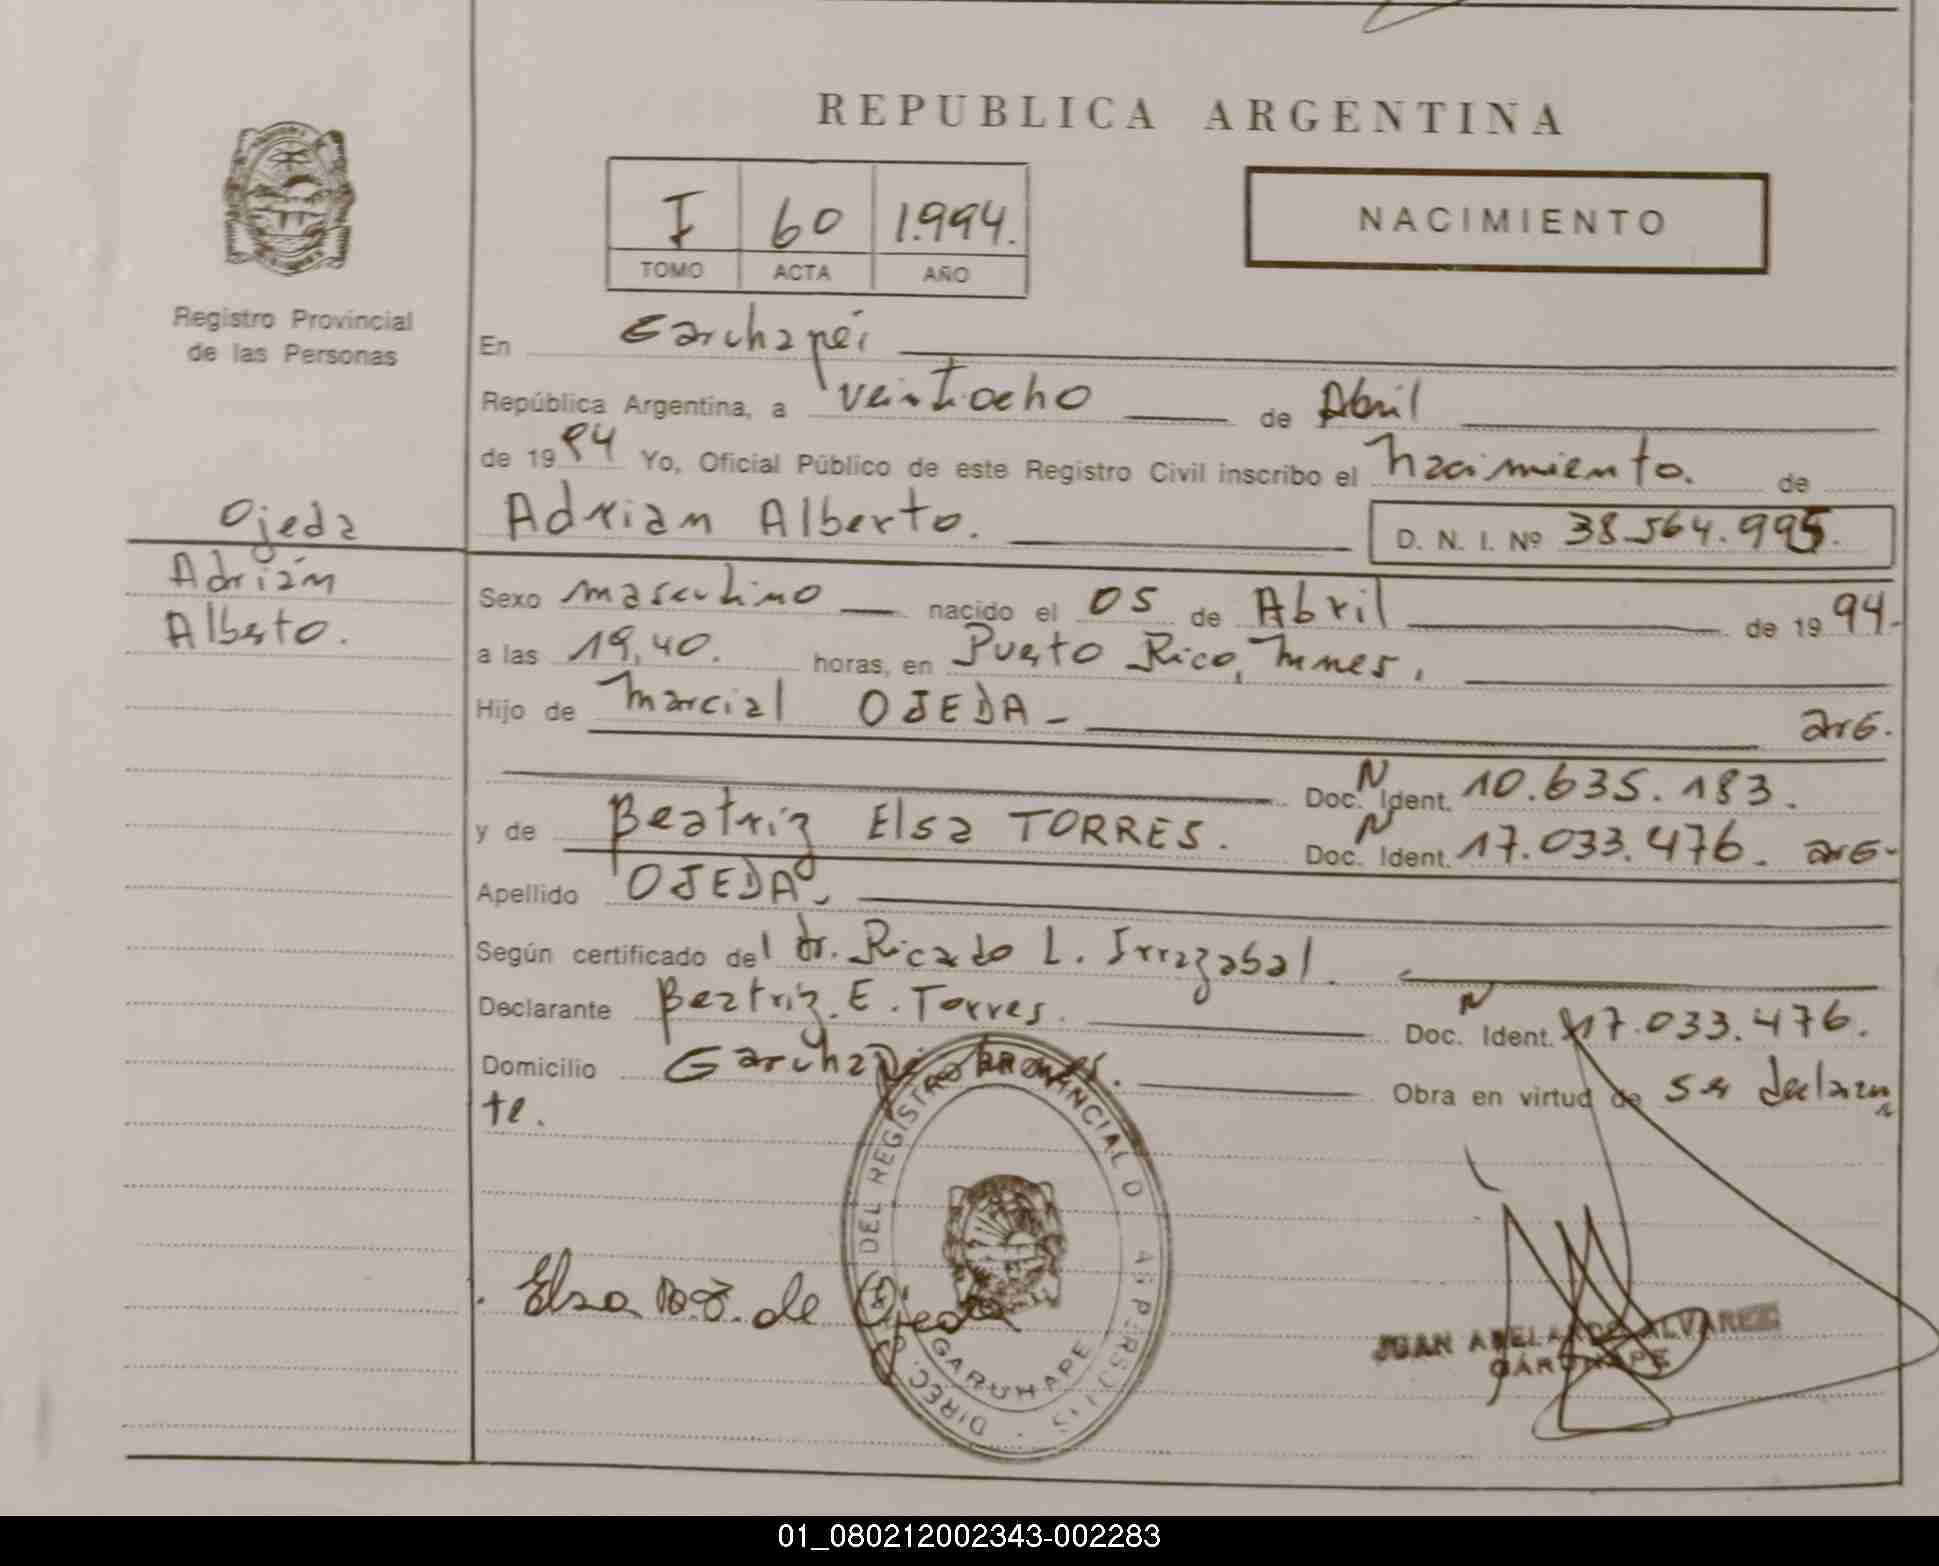 REPUBLICA ARGENTINA
I 60 1.994.
TOMO ACTA AÑO
NACIMIENTO
Registro Provincial
de las Personas
En Garuhapé
República Argentina, a veintiocho de Abril
de 1994 Yo, Oficial Público de este Registro Civil inscribo el nacimiento. de
Ojeda
Adrián
Alberto.
Adrian Alberto. D. N. I. Nº 38.564.995.
Sexo masculino nacido el 05 de Abril de 1994.
a las 19,40. horas, en Puerto Rico, Mnes.
Hijo de Marcial OJEDA - arG.
Doc. N Ident. 10.635.183.
y de Beatriz Elsa TORRES. Doc. N Ident. 17.033.476. arG-
Apellido OJEDA.
Según certificado del dr. Ricardo L. Irrazabal.
Declarante Beatriz. E. Torres. Doc. N Ident. 17.033.476.
Domicilio Garuhapé Obra en virtud de ser declaran
te.
DIREC. G DEL REGISTRO PROVINCIAL D
GARUHAPE
Elsa B. T. de Ojeda
JUAN ABELARDO ALVAREZ
GARUHAPE
01_080212002343-002283